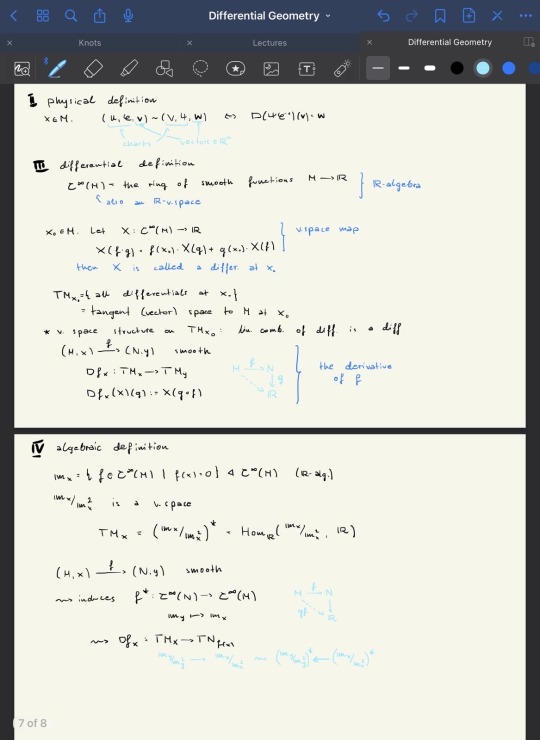 Differential Geometry
Knots
Lectures
Differential Geometry
II physical definition
x∈M. (U, φ, v) ~ (V, ψ, w) ⇔ D(ψφ⁻¹)(v) = w
charts vectors ∈ ℝⁿ
III differential definition
C^∞(M) = the ring of smooth functions M → ℝ } ℝ-algebra
also an ℝ-v.space
x₀∈M. Let X : C^∞(M) → ℝ } v.space map
X(f·g) = f(x₀)·X(g) + g(x₀)·X(f)
then X is called a differ. at x₀
TMx₀ = { all differentials at x₀ }
= tangent (vector) space to M at x₀
* v. space structure on TMx₀ : lin comb. of diff. is a diff
(M, x) –f→ (N, y) smooth
Dfx : TMx → TMy M –f→ N ↓g ℝ } the derivative of f
Dfx(X)(g) := X(g∘f)
IV algebraic definition
mx = { f ∈ C^∞(M) | f(x) = 0 } ◁ C^∞(M) (ℝ-alg.)
mx/mx² is a v.space
TMx = (mx/mx²)* = Homℝ(mx/mx², ℝ)
(M, x) –f→ (N, y) smooth
⇝ induces f* : C^∞(N) → C^∞(M) M –f→ N gf ↓ ℝ
my ↦ mx
⇝ Dfx : TMx → TNf(x)
my/my² → mx/mx² ⇝ (my/my²)* ← (mx/mx²)*
7 of 8